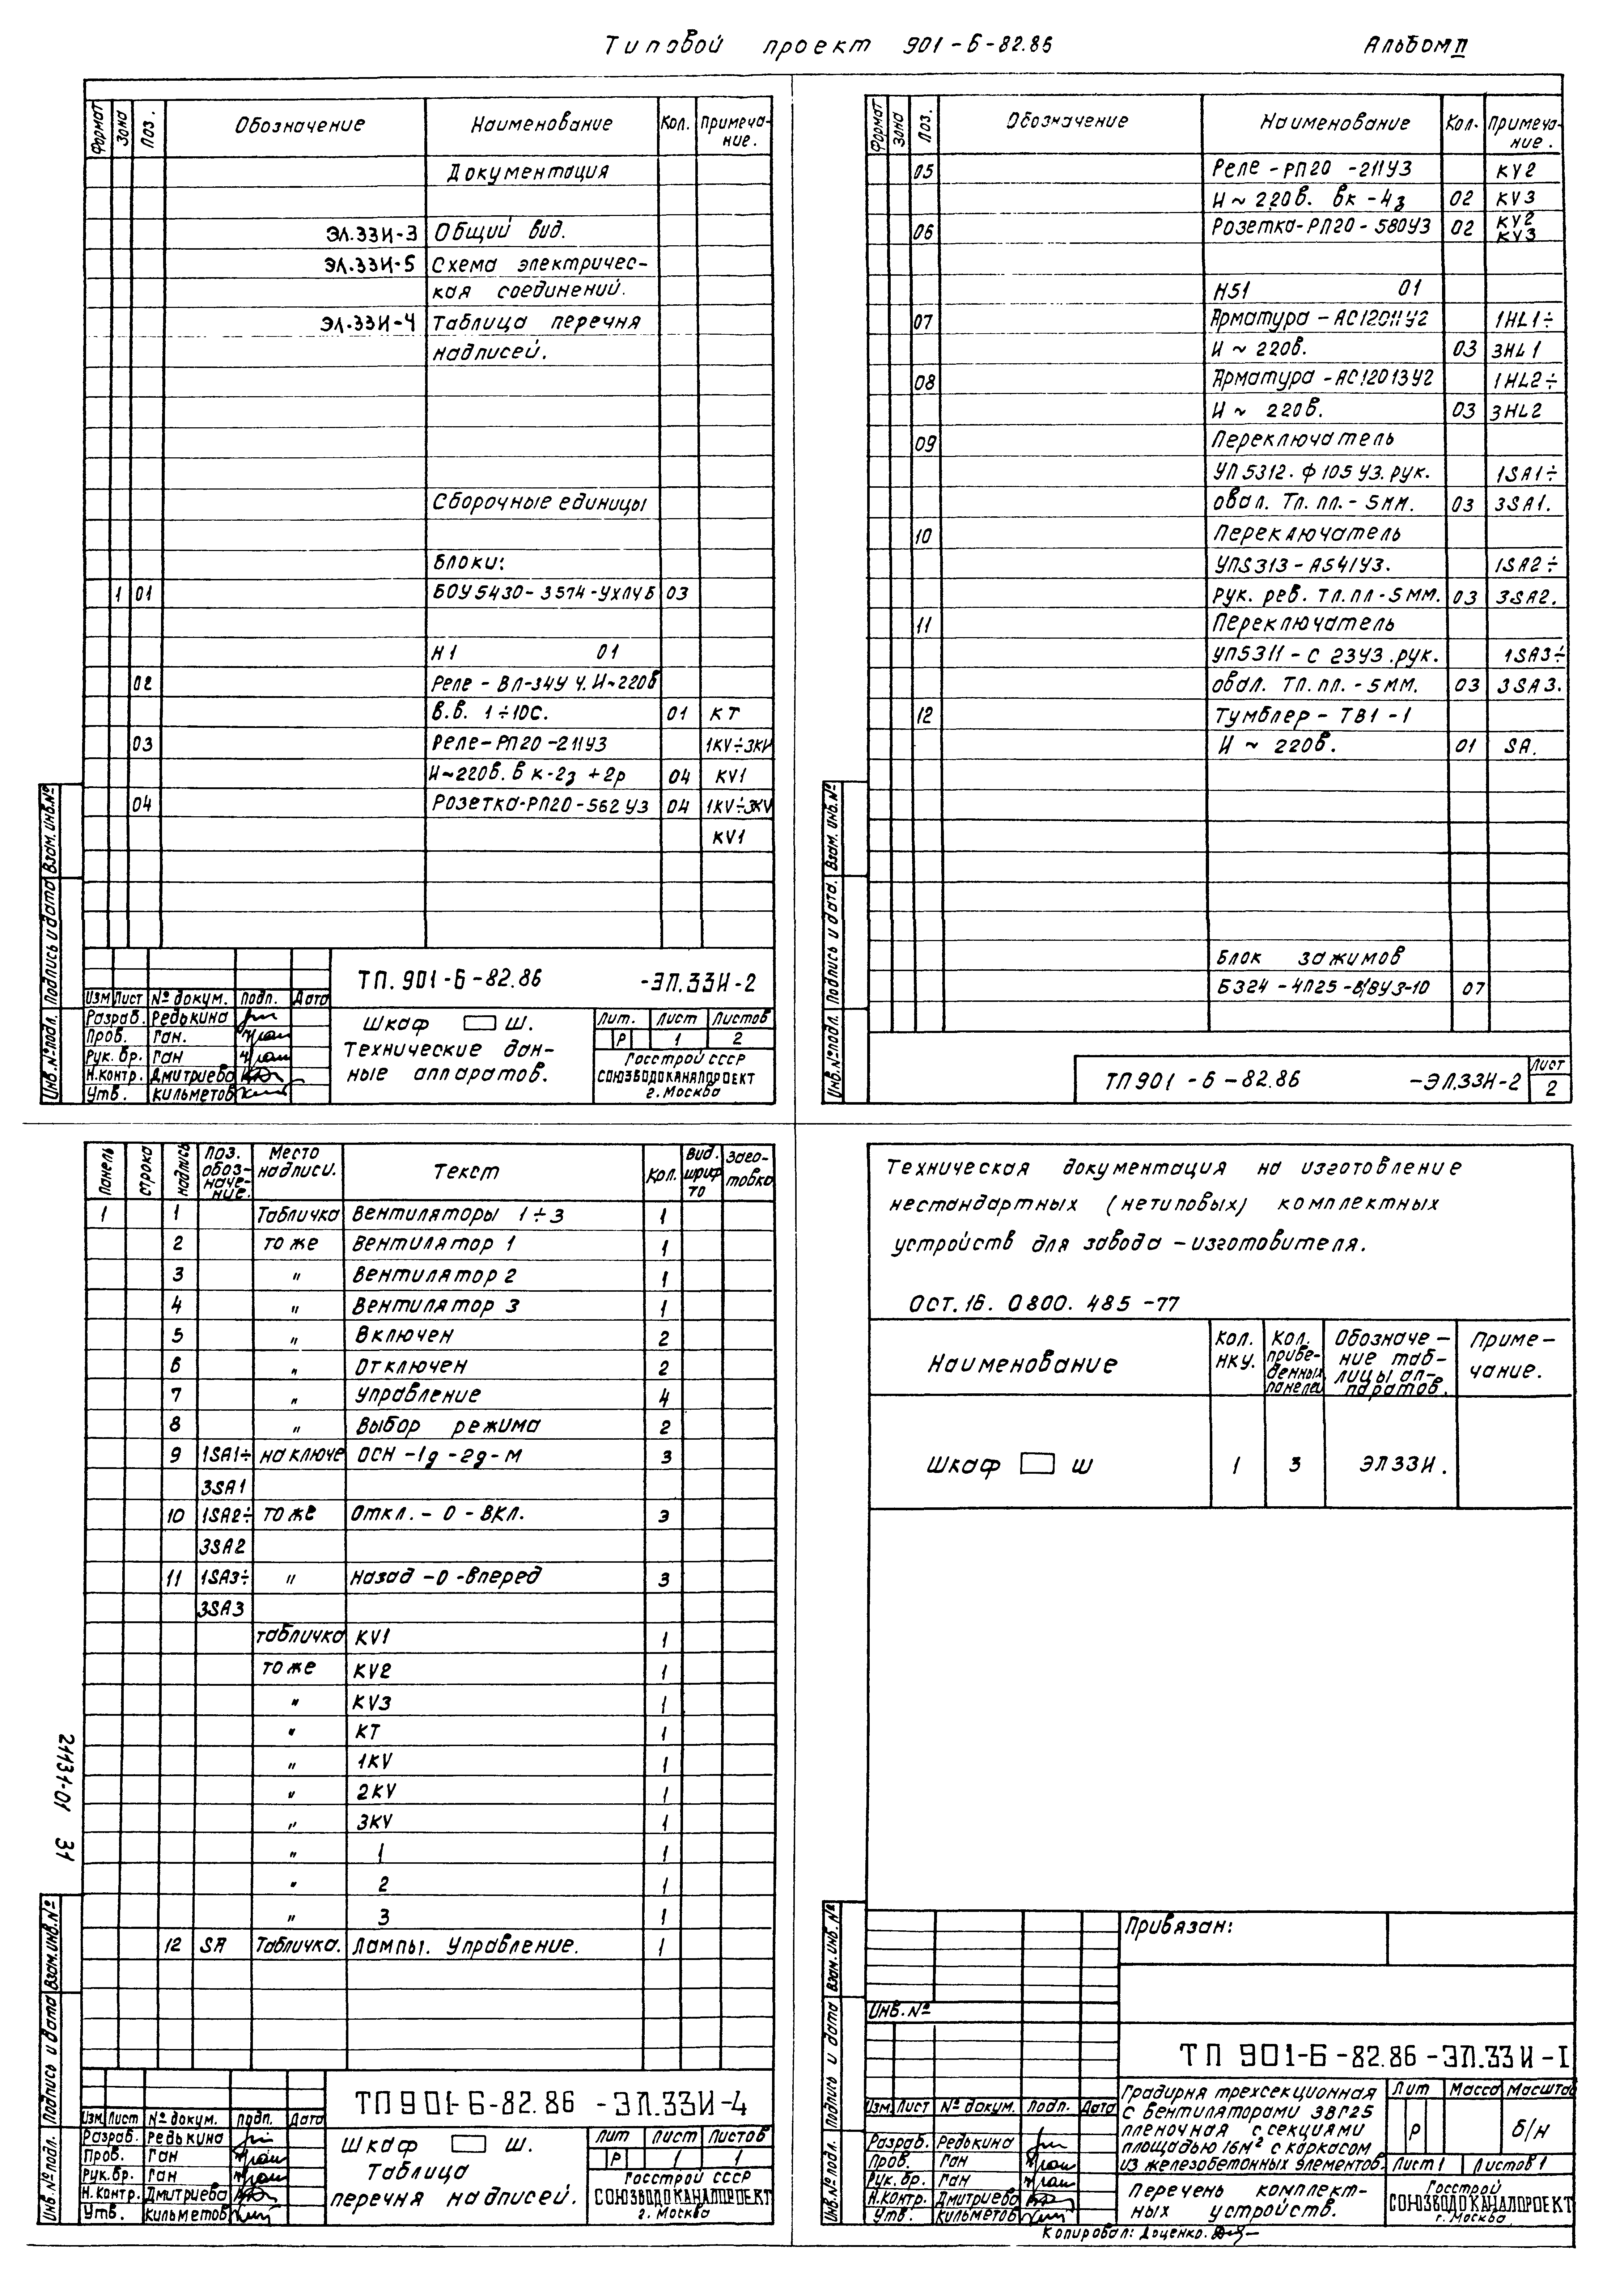 Типовой проект 901-6-82.86 Альбом II
Формат Зона Поз. Обозначение Наименование Кол. Примеча-
ние.
Документация
ЭЛ.ЗЗИ-3 Общий вид.
ЭЛ.ЗЗИ-5 Схема электричес-
кая соединений.
ЭЛ.ЗЗИ-4 Таблица перечня
надписей.
Сборочные единицы
Блоки:
1 01 БОУ5430-3574-УХЛ4Б 03
Н1 01
02 Реле - ВЛ-34У4. И~220в
в.в. 1÷10с. 01 КТ
03 Реле-РП20-211У3 1KV÷3KV
И~220в. в к-2з +2р 04 KV1
04 Розетка-РП20-562 У3 04 1KV÷3KV
KV1
Взам. инв. №
Подпись и дата
Инв. № подл.
ТП.901-6-82.86 -ЭЛ.ЗЗИ-2
Изм Лист № докум. Подп. Дата
Разраб. Редькина
Пров. Ган.
Рук. бр. Ган
Н.контр. Дмитриева
Утв. Кильметов
Шкаф Ш.
Технические дан-
ные аппаратов.
Лит. Лист Листов
Р 1 2
Госстрой СССР
СОЮЗВОДОКАНАЛПРОЕКТ
г. Москва
Формат Зона Поз. Обозначение Наименование Кол. Примеча-
ние.
05 Реле-РП20-211У3 KV2
И~220в. вк-4з 02 KV3
06 Розетка-РП20-580У3 02 KV2
KV3
Н51 01
07 Арматура-АС12011У2 1HL1÷
И~220в. 03 3HL1
08 Арматура-АС12013У2 1HL2÷
И~220в. 03 3HL2
09 Переключатель
УП5312.Ф105У3.рук. 1SA1÷
овал. Тл. пл.-5мм. 03 3SA1.
10 Переключатель
УП5313-А541У3. 1SA2÷
рук. рев. тл. пл-5мм. 03 3SA2.
11 Переключатель
УП5311-С 23У3.рук. 1SA3÷
овал. Тл. пл.-5мм. 03 3SA3.
12 Тумблер-ТВ1-1
И~220в. 01 SA.
Блок зажимов
БЗ24-4П25-В/ВУ3-10 07
Взам. инв. №
Подпись и дата.
Инв. № подл.
ТП901-6-82.86 -ЭЛ.ЗЗИ-2 Лист
2
Панель строка надпись Поз.
обоз-
наче-
ние. Место
надписи. Текст Кол. Вид.
шриф
та Заго-
товка
1 1 Табличка Вентиляторы 1÷3 1
2 то же Вентилятор 1 1
3 " Вентилятор 2 1
4 " Вентилятор 3 1
5 " Включен 2
6 " Отключен 2
7 " Управление 4
8 " Выбор режима 2
9 1SA1÷ на ключе ОСН-1д-2д-М 3
3SA1
10 1SA2÷ то же Откл.-0-ВКЛ. 3
3SA2
11 1SA3÷ " Назад-0-вперед 3
3SA3
табличка KV1 1
то же KV2 1
" KV3 1
" КТ 1
" 1KV 1
" 2KV 1
" 3KV 1
" 1 1
" 2 1
" 3 1
12 SA Табличка. Лампы. Управление. 1
21131-01 31
Взам. инв. №
Подпись и дата
Инв. № подл.
ТП901-6-82.86 -ЭЛ.ЗЗИ-4
Изм. Лист № докум. Подп. Дата
Разраб. Редькина
Пров. Ган
Рук.бр. Ган
Н.контр. Дмитриева
Утв. Кильметов
Шкаф Ш.
Таблица
перечня надписей.
Лит Лист Листов
Р 1 1
Госстрой СССР
СОЮЗВОДОКАНАЛПРОЕКТ
г. Москва
Техническая документация на изготовление
нестандартных (нетиповых) комплектных
устройств для завода-изготовителя.
Ост. 16. 0800. 485-77
Наименование Кол.
НКУ. Кол.
приве-
денных
панелей Обозначе-
ние таб-
лицы ап-
паратов. Приме-
чание.
Шкаф Ш 1 3 ЭЛЗЗИ.
Взам. инв. №
Подпись и дата
Инв. № подл.
Привязан:
Инв. №
ТП 901-6-82.86-ЭЛ.ЗЗИ-1
Изм. Лист № докум. Подп. Дата
Разраб. Редькина
Пров. Ган
Рук. бр. Ган
Н.контр. Дмитриева
Утв. Кильметов
Градирня трехсекционная
с вентиляторами 3ВГ25
пленочная с секциями
площадью 16м² с каркасом
из железобетонных элементов.
Лит Масса Масштаб
Р б/н
Лист 1 Листов 1
Перечень комплект-
ных устройств.
Госстрой
СОЮЗВОДОКАНАЛПРОЕКТ
г. Москва
Копировал: Доценко.